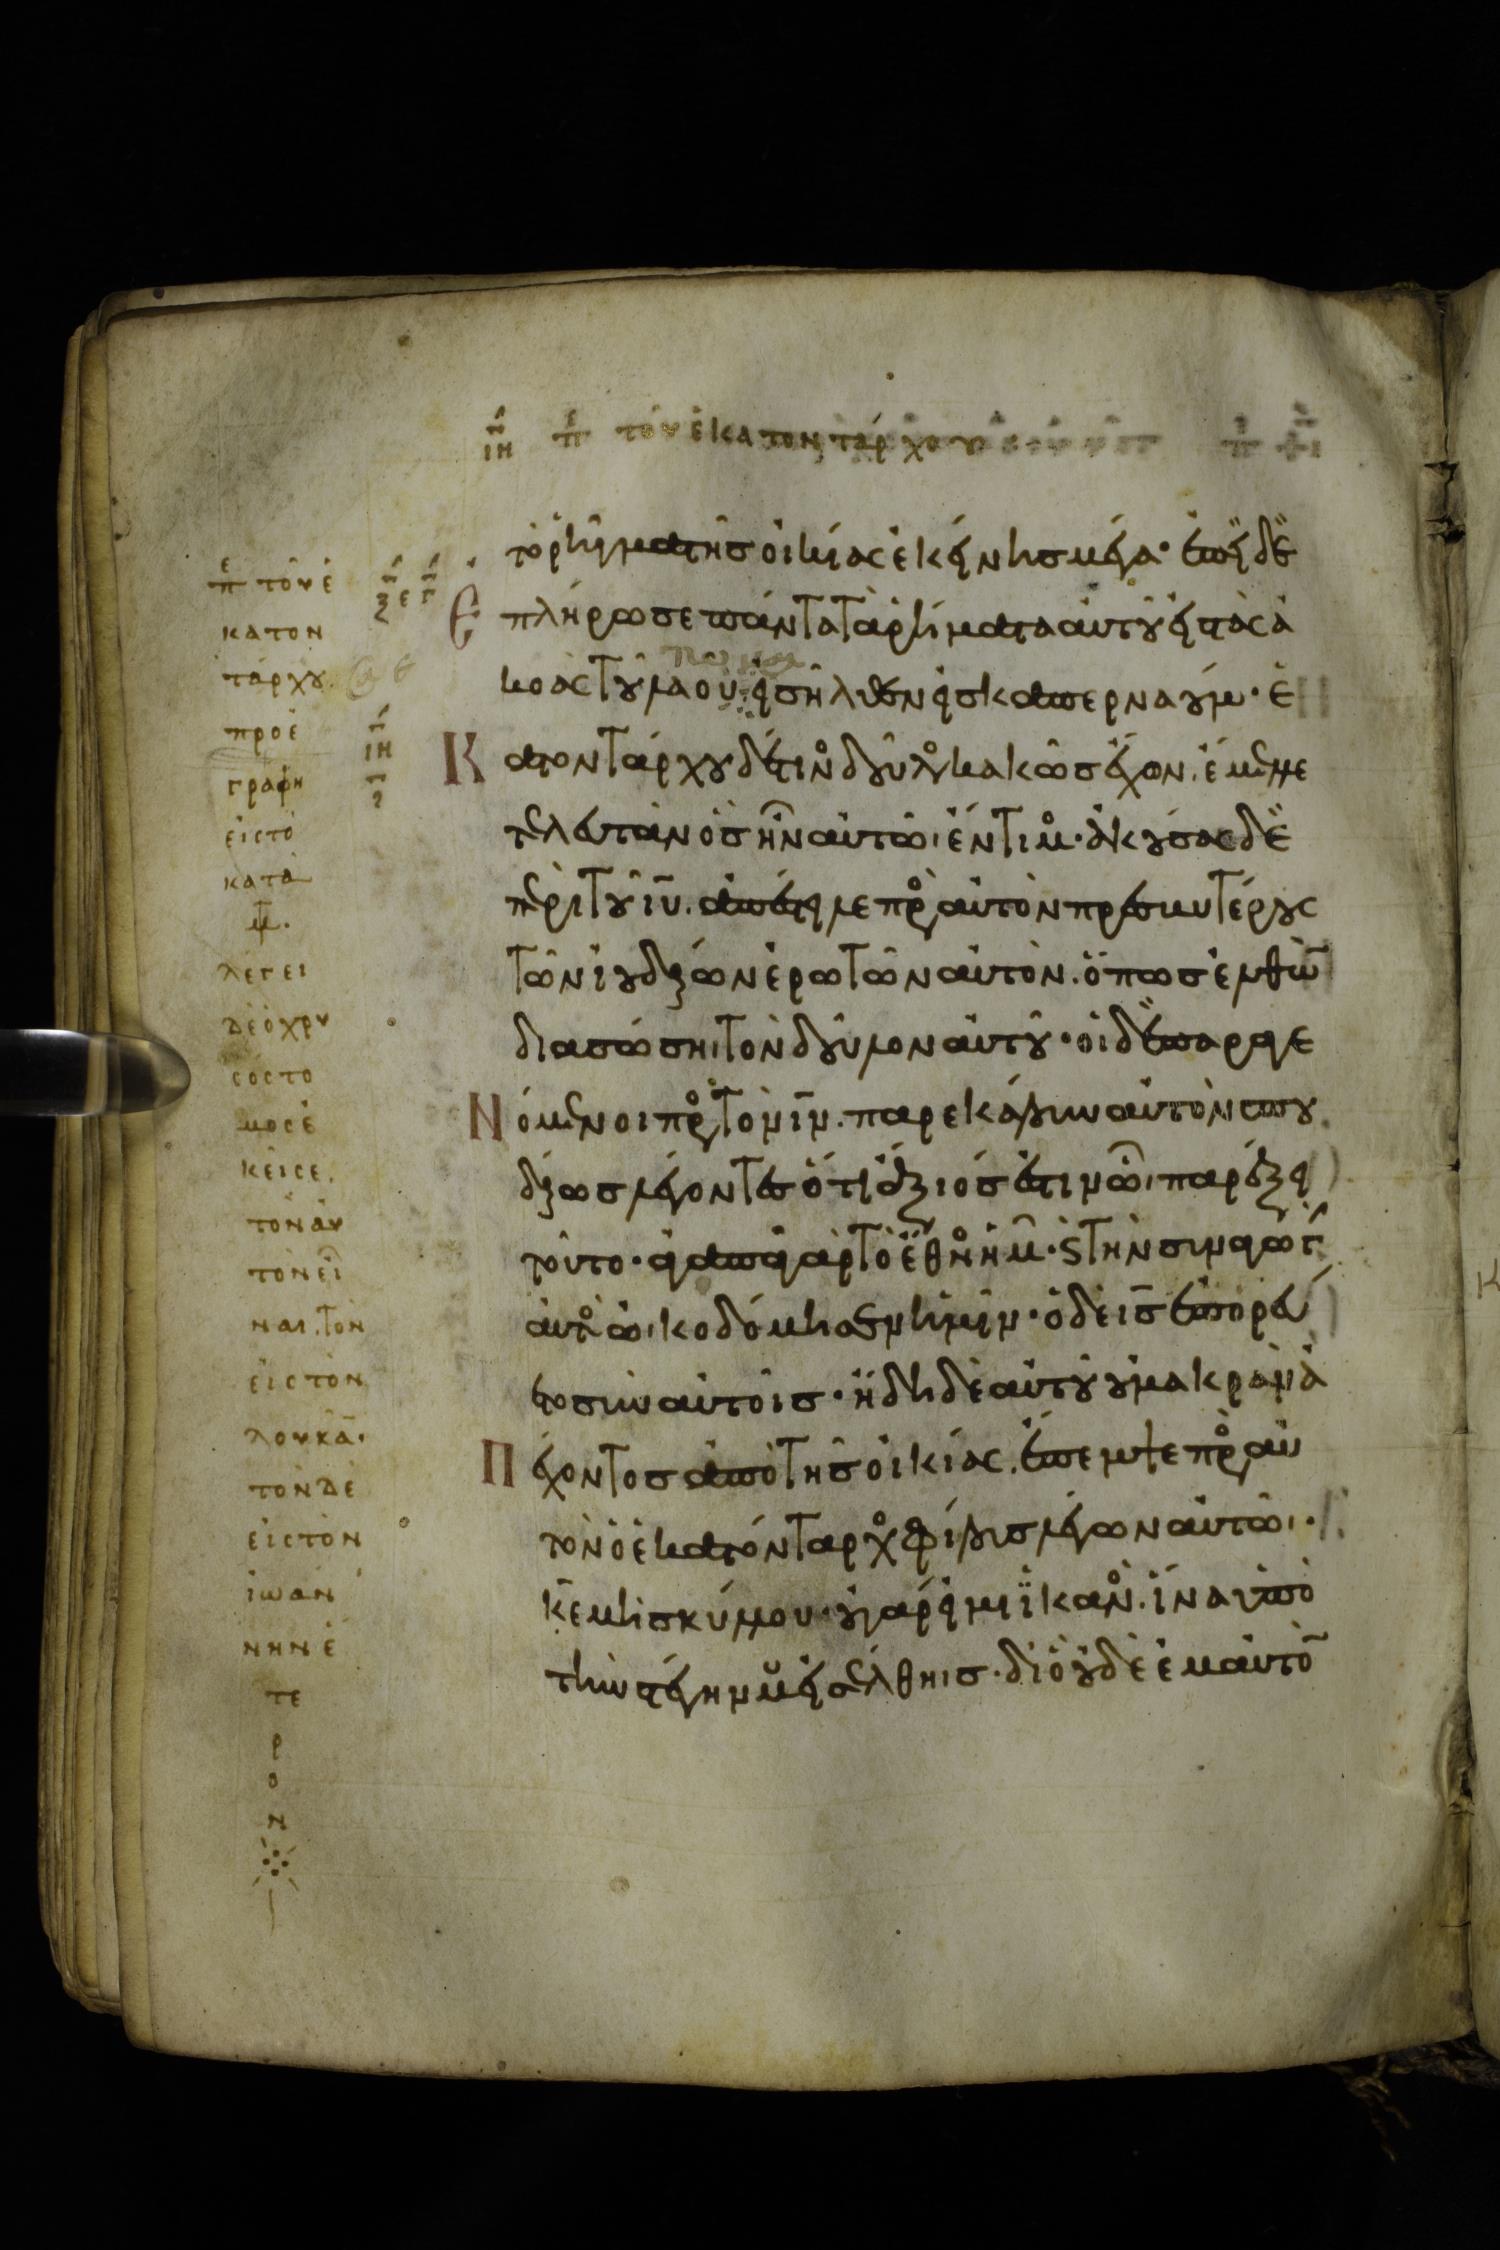 ιη π τοῦ ἑκατοντάρχου
τὸ ῥῆγμα τῆς οἰκίας ἐκείνης μέγα· ἐπεὶ δὲ
ἐπλήρωσε πάντα τὰ ῥήματα αὐτοῦ εἰς τὰς ἀ
κοὰς τοῦ λαοῦ· εἰσῆλθεν εἰς καπερναούμ· ἑ
Κατοντάρχου δέ τινος δοῦλος κακῶς ἔχων. ἔμελλε
τελευτᾶν ὃς ἦν αὐτῶ· ἔντιμος· ἀκούσας δὲ
περὶ τοῦ ιυ. ἀπέστειλε πρὸς αὐτὸν πρεσβυτέρους
τῶν ἰουδαίων ἐρωτῶν αὐτὸν. ὅπως ἐλθὼν
διασώσηι τὸν δοῦλον αὐτοῦ· οἱ δὲ παραγε
Νόμενοι πρὸς τὸν ιν. παρεκάλουν αὐτὸν σπου
δαίως λέγοντες ὅτι ἄξιός ἐστιν ὧι παρέξει
τοῦτο· ἀγαπᾶ γὰρ τὸ ἔθνος ἡμῶν· καὶ τὴν συναγωγὴν
αὐτὸς ὠικοδόμησεν ἡμῖν· ὁ δὲ ις ἐπορεύ
ετο σὺν αὐτοῖς· ἤδη δὲ αὐτοῦ οὐ μακρὰν ἀ
Πέχοντος ἀπὸ τῆς οἰκίας. ἔπεμψε πρὸς αὐ
τὸν ὁ ἑκατόνταρχος φίλους λέγων αὐτῶι·
κε μὴ σκύλλου· οὐ γάρ εἰμι ἱκανὸς. ἵνα ὑπὸ
τὴν στέγην μου εἰσέλθηις· διὸ οὐδὲ ἐμαυτὸν
π τοῦ ἑ
κατον
τάρχου.
προε
γράφη
εἰς τὸ
κατὰ
μτ.
λέγει
δὲ ὁ χρυ
σόστο
μος ἐ
κεῖσε.
τὸν αὐ
τὸν εἶ
ναι. τὸν
εἰς τὸν
λουκᾶν·
τὸν δὲ
εἰς τὸν
ἰωάν
νην ἕ
τε
ρ
ο
ν